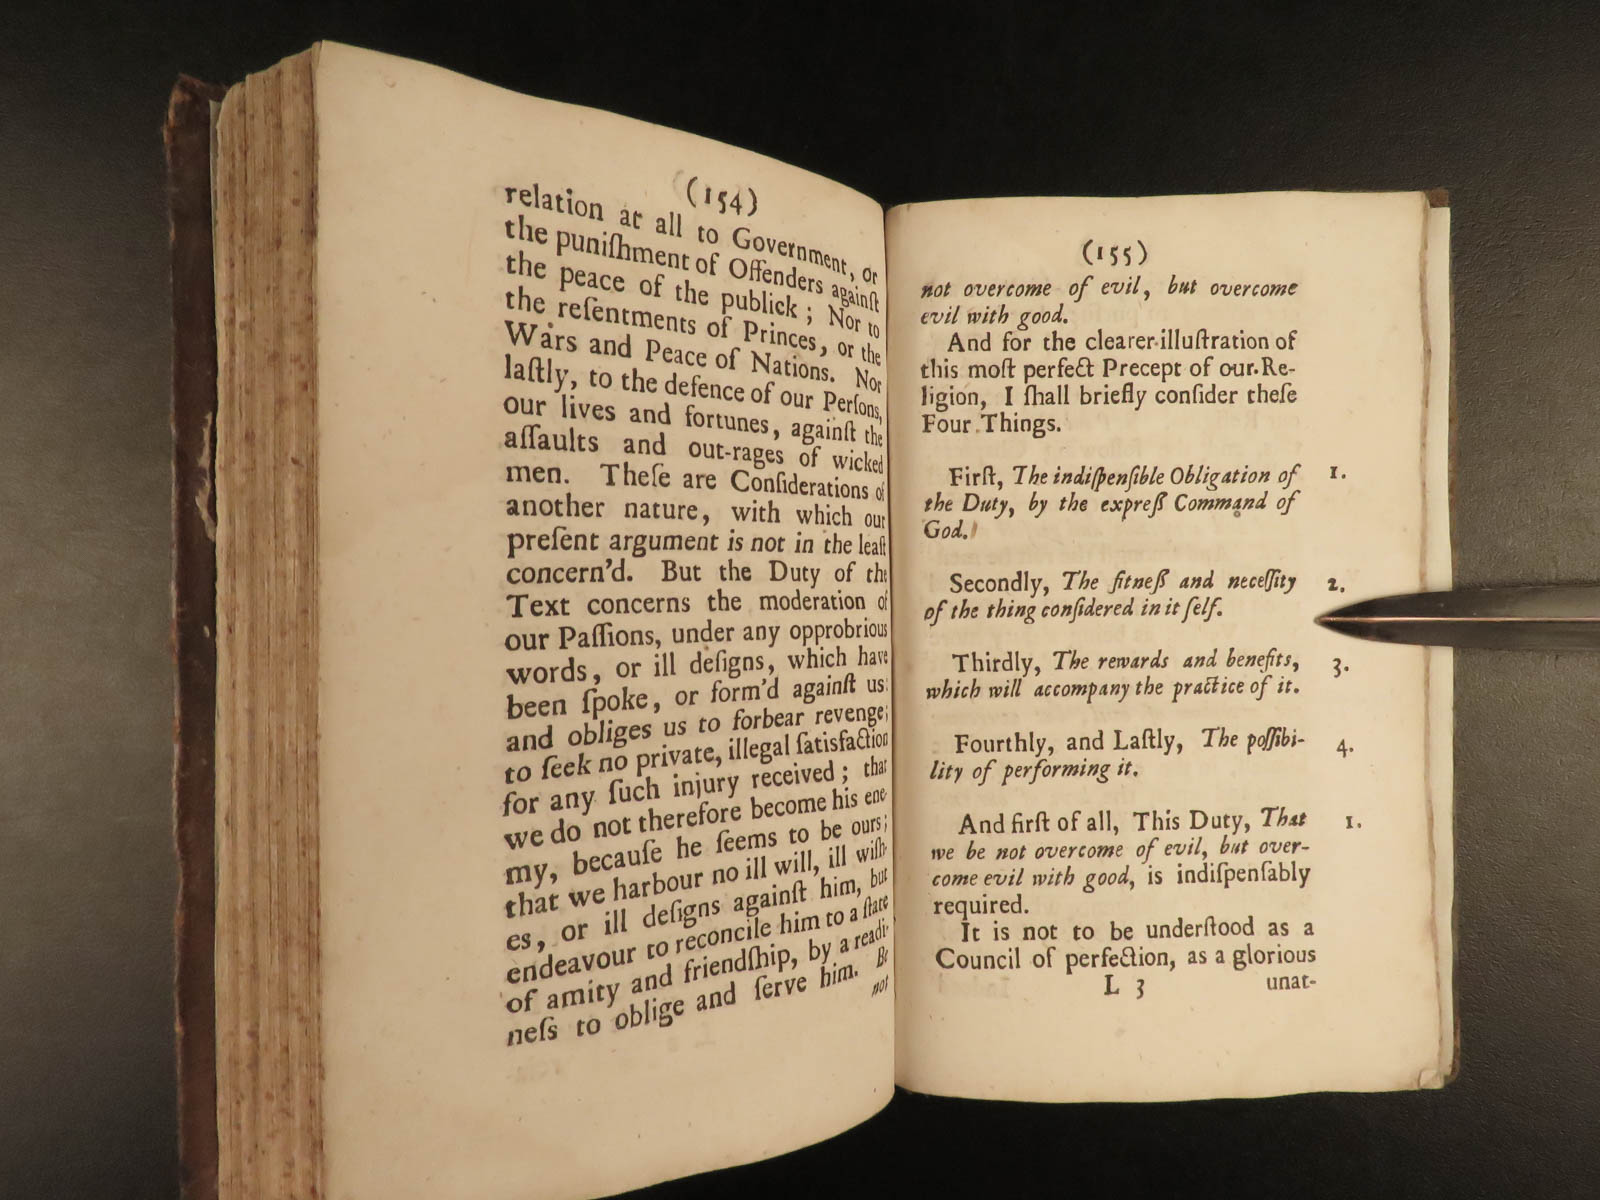 (154)
relation at all to Government, or
the puniſhment of Offenders againſt
the peace of the publick ; Nor to
the reſentments of Princes, or the
Wars and Peace of Nations. Nor
laſtly, to the defence of our Perſons,
our lives and fortunes, againſt the
aſſaults and out-rages of wicked
men. Theſe are Conſiderations of
another nature, with which our
preſent argument is not in the leaſt
concern'd. But the Duty of the
Text concerns the moderation of
our Paſſions, under any opprobrious
words, or ill deſigns, which have
been ſpoke, or form'd againſt us:
and obliges us to forbear revenge;
to ſeek no private, illegal ſatisfaction
for any ſuch injury received ; that
we do not therefore become his ene-
my, becauſe he ſeems to be ours;
that we harbour no ill will, ill wiſh-
es, or ill deſigns againſt him, but
endeavour to reconcile him to a ſtate
of amity and friendſhip, by a readi-
neſs to oblige and ſerve him. Be
not
(155)
not overcome of evil, but overcome
evil with good.
And for the clearer illuſtration of
this moſt perfect Precept of our Re-
ligion, I ſhall briefly conſider theſe
Four Things.
Firſt, The indiſpenſible Obligation of 1.
the Duty, by the expreß Command of
God.
Secondly, The fitneß and neceſſity 2.
of the thing conſidered in it ſelf.
Thirdly, The rewards and benefits, 3.
which will accompany the practice of it.
Fourthly, and Laſtly, The poſſibi- 4.
lity of performing it.
And firſt of all, This Duty, That 1.
we be not overcome of evil, but over-
come evil with good, is indiſpenſably
required.
It is not to be underſtood as a
Council of perfection, as a glorious
L 3 unat-